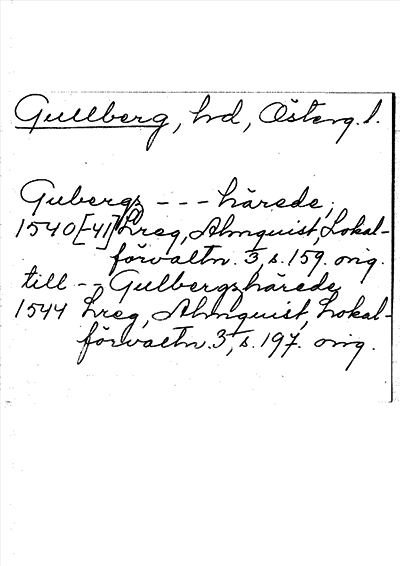 Gullberg, hd, Österg.l.
Gubergz - - - härede,
1540[-41] Lreg, Almquist, Lokal-
förvaltn. 3, s. 159. orig.
till - - Gulbergzhärede
1544 Lreg, Almquist, Lokal-
förvaltn. 3, s. 197. orig.